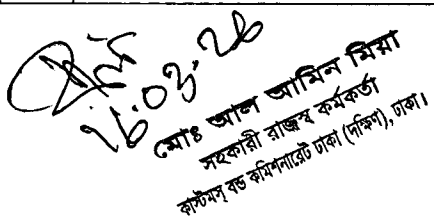 ১৬.০৩.২৬
মোঃ আল আমিন মিয়া
সহকারী রাজস্ব কর্মকর্তা
কাস্টমস্ বন্ড কমিশনারেট ঢাকা (দক্ষিণ), ঢাকা।